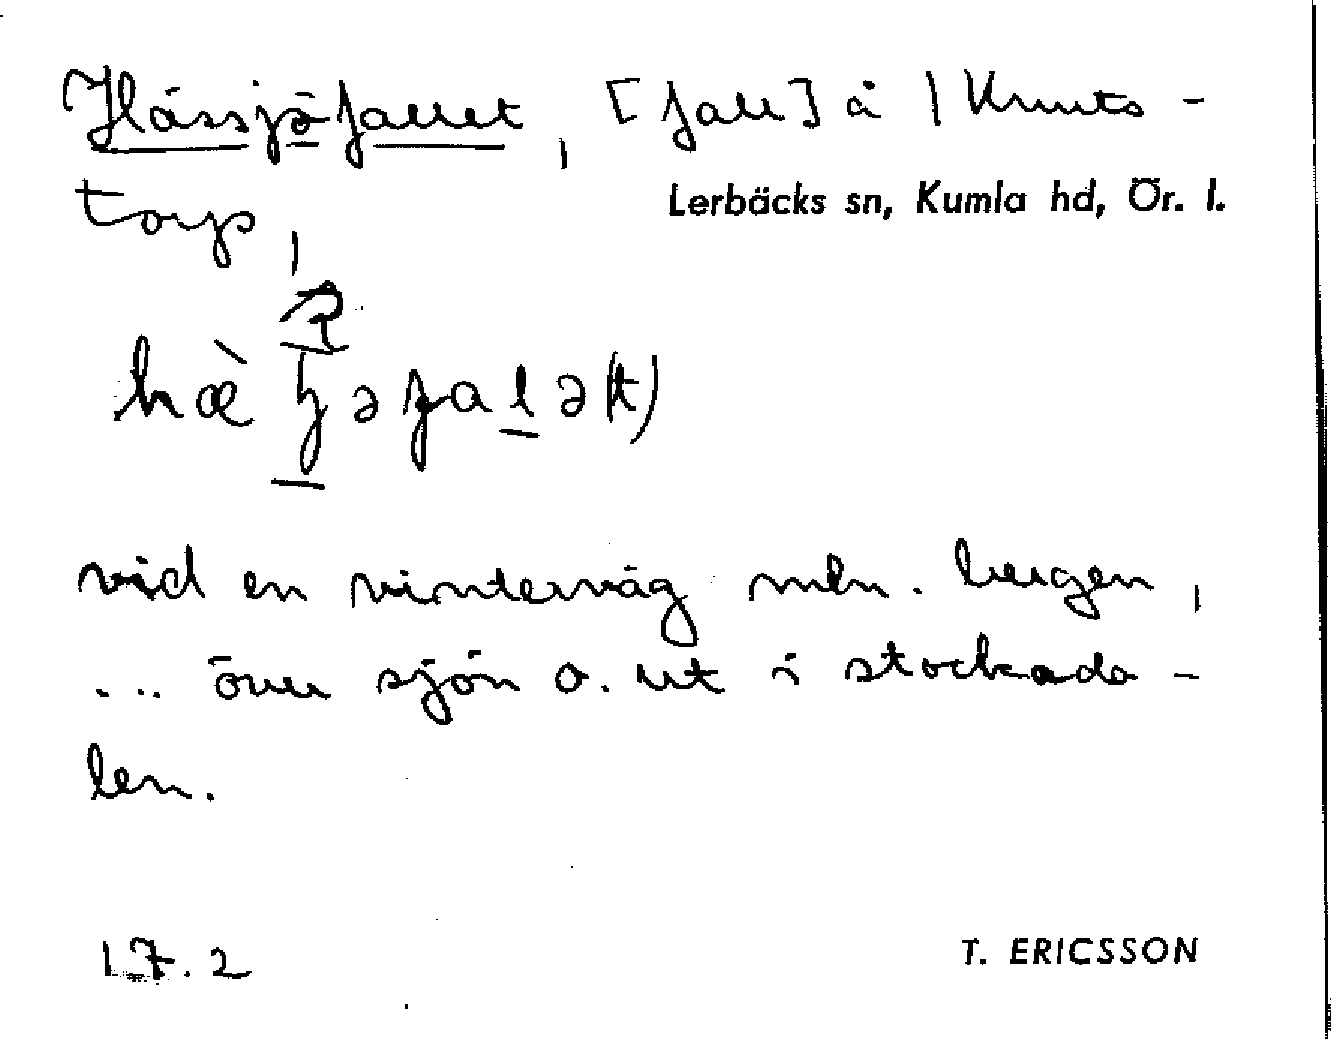 Hässjöfallet, [fall] å | Knuts-
Lerbäcks sn, Kumla hd, Ör. l.
torp,
vid en vinterväg mln. bergen,
... över sjön o. ut i stockada-
len.
17.2
T. ERICSSON